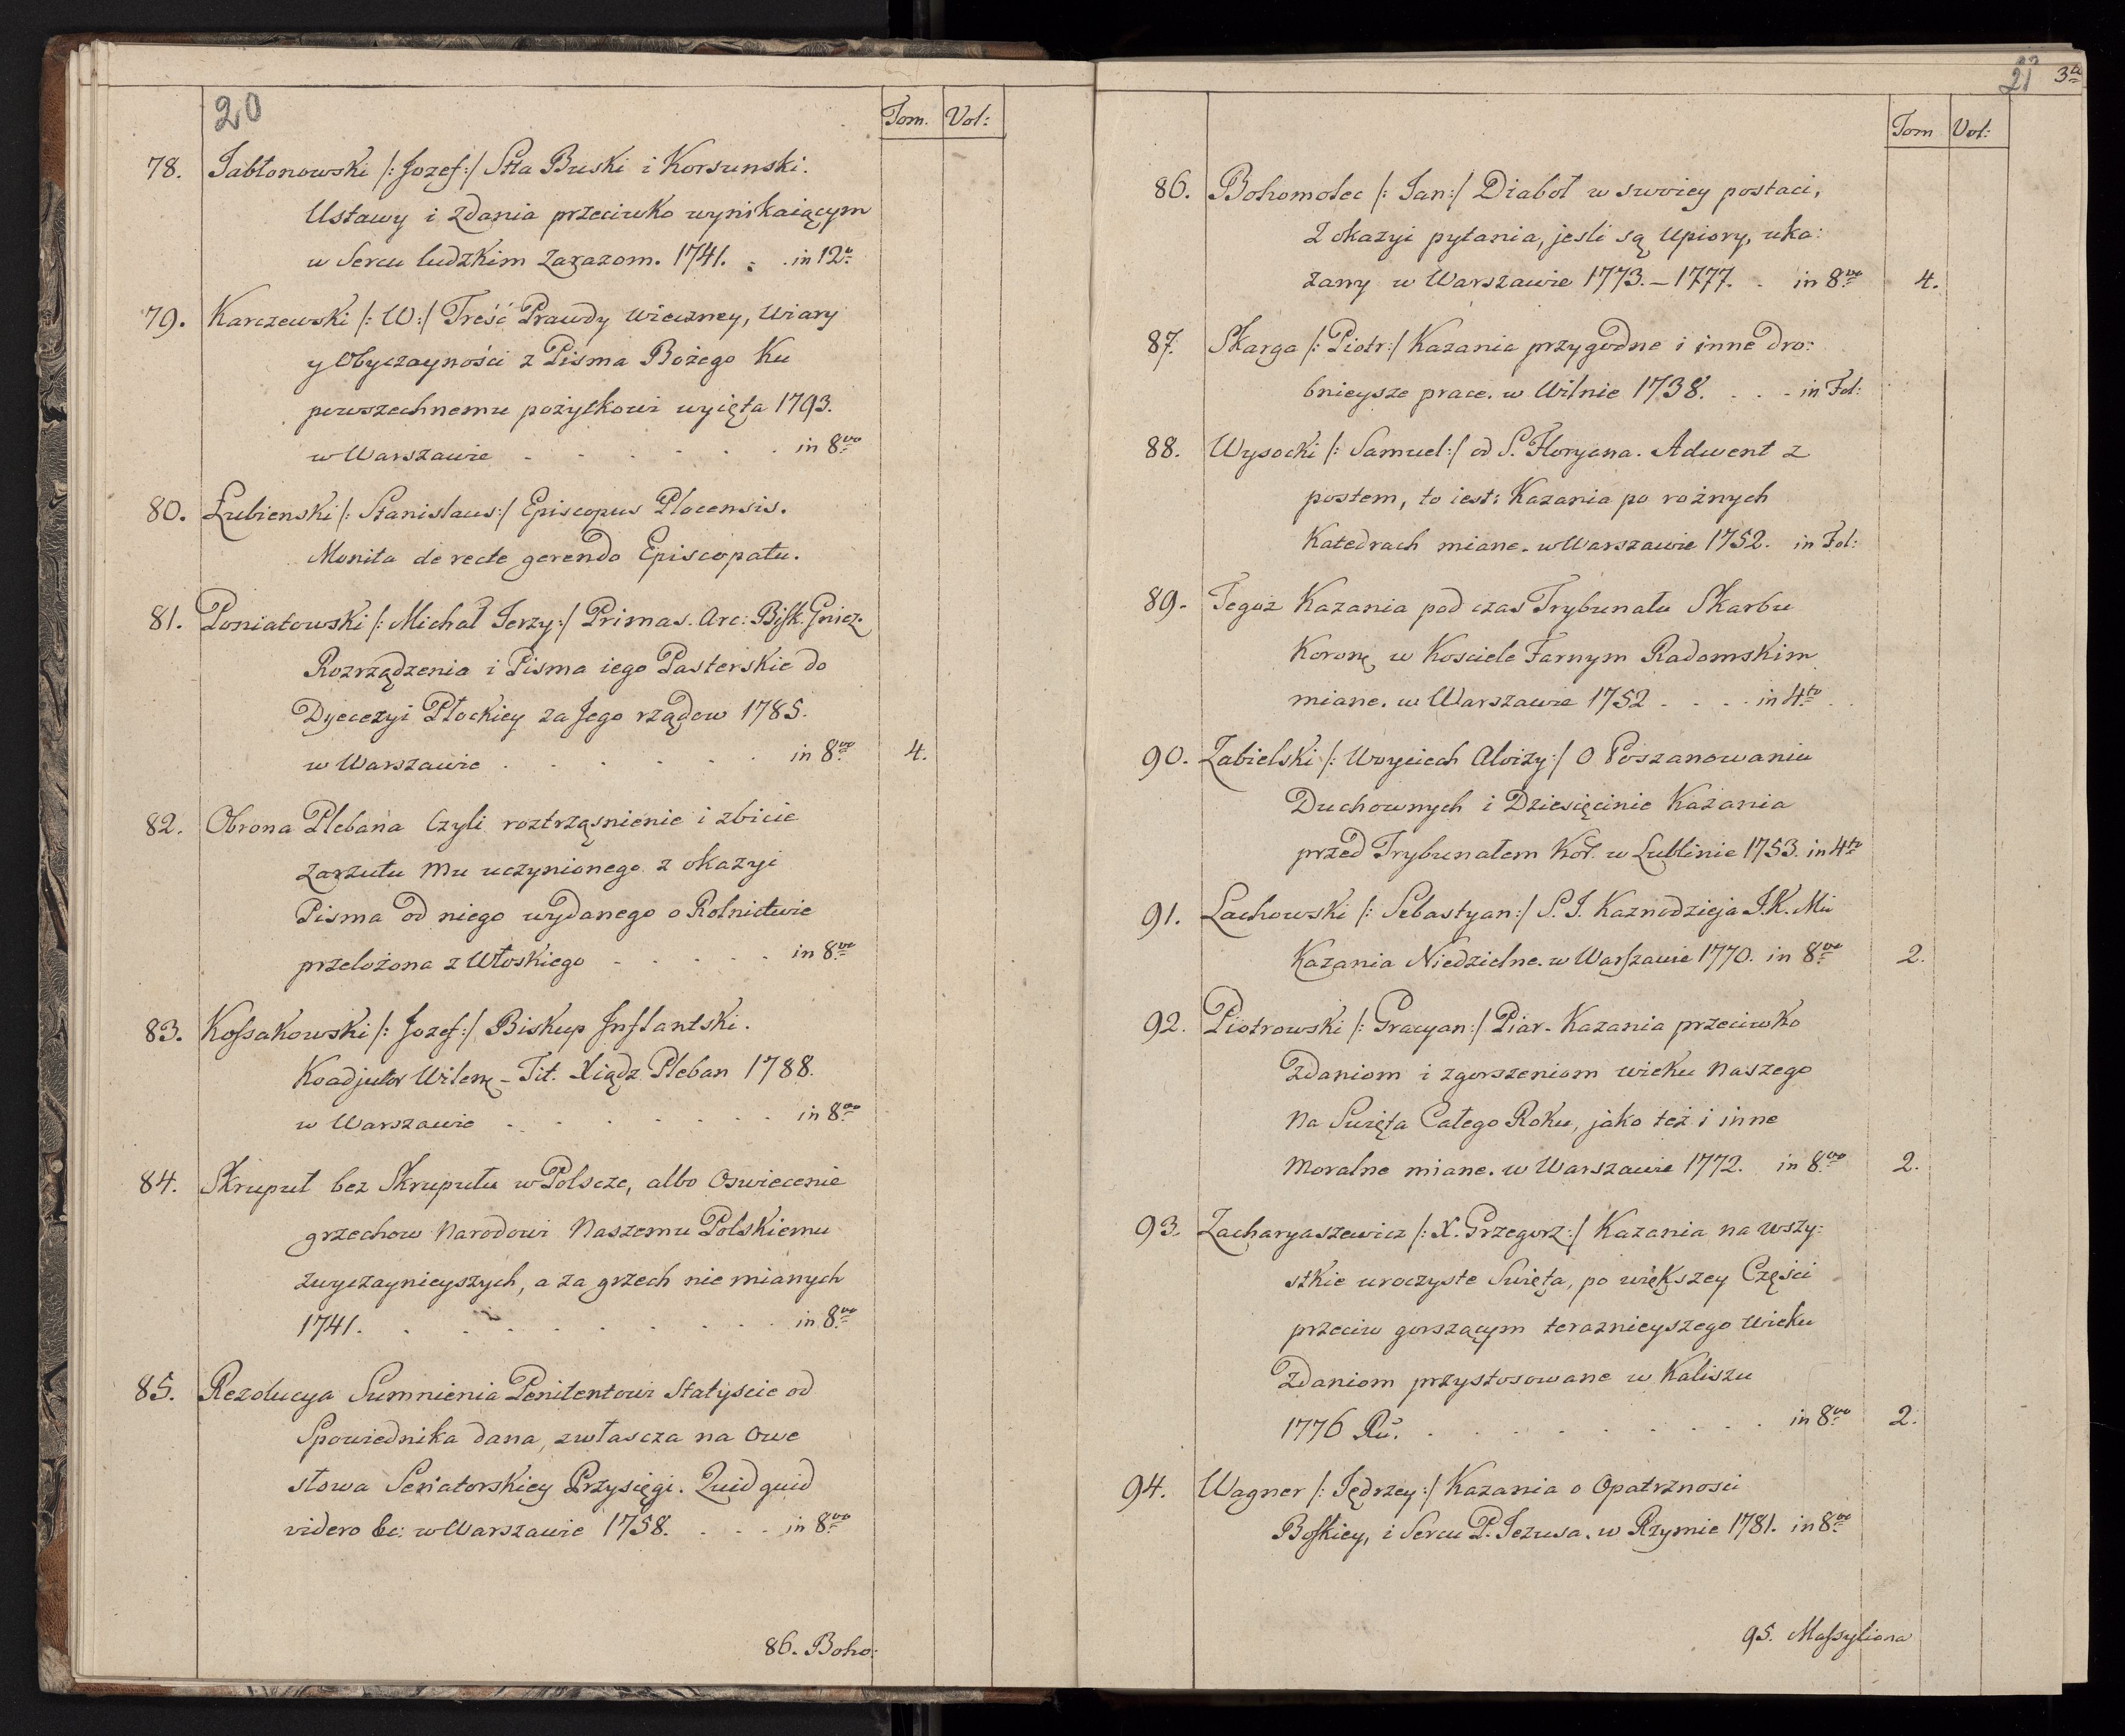 20
Tom. Vol:
78. Jabłonowski /: Jozef :/ Stta Buski i Korsunski.
Ustawy i zdania przeciwko wynikaiącym
w Sercu ludzkim Zarazom. 1741. . . in 12o
79. Karczewski /: W :/ Treść Prawdy wieczney, Wiary
y Obyczayności z Pisma Bożego Ku
powszechnemu pożytkowi wyięta 1793.
w Warszawie . . . . . . in 8vo
80. Łubienski /: Stanislaus :/ Episcopus Plocensis.
Monita de recte gerendo Episcopatu.
81. Poniatowski /: Michał Jerzy :/ Primas. Arc: Bisk. Gniez.
Rozrządzenia i Pisma iego Pasterskie do
Dyecezyi Płockiey za Jego rządow 1785.
w Warszawie . . . . . . in 8vo 4.
82. Obrona Plebana Czyli roztrząsnienie i zbicie
zarzutu Mu uczynionego z okazyi
Pisma od niego wydanego o Rolnictwie
przelożona z Włoskiego . . . . . in 8vo
83. Kossakowski /: Jozef :/ Biskup Inflantski.
Koadjutor Wilenę - Tit. Xiądz Pleban 1788.
w Warszawie . . . . . . in 8vo
84. Skrupuł bez Skrupułu w Polszcze, albo Oswiecenie
grzechow Narodowi Naszemu Polskiemu
zwyczaynieyszych, a za grzech nie mianych
1741. . . . . . . . . . in 8vo
85. Rezolucya Sumnienia Penitentowi Statyscie od
Spowiednika dana, zwłascza na Owe
słowa Senatorskiey Przysięgi. Quid quid
videro &c: w Warszawie 1758. . . . in 8vo
86. Boho:
21 3te
Tom Vol:
86. Bohomolec /: Jan :/ Diaboł w swoiey postaci,
Z okazyi pytania, jesli są Upiory, uka:
zany w Warszawie 1773. - 1777. . in 8vo 4.
87. Skarga /: Piotr :/ Kazania przygodne i inne dro:
bnieysze prace. w Wilnie 1738. . . . in Fol:
88. Wysocki /: Samuel :/ od S. Floryana. Adwent z
postem, to iest: Kazania po rożnych
Katedrach miane. w Warszawie 1752. in Fol:
89. Tegoż Kazania pod czas Trybunału Skarbu
Koronę w Kosciele Farnym Radomskim
miane. w Warszawie 1752 . . . . in 4to
90. Zabielski /: Woyciech Aloizy :/ O Poszanowaniu
Duchownych i Dziesięcinie Kazania
przed Trybunałem Kor. w Lublinie 1753. in 4to
91. Lachowski /: Sebastyan :/ S. J. Kaznodzieja J. K. Mci
Kazania Niedzielne. w Warszawie 1770. in 8vo 2.
92. Piotrowski /: Gracyan :/ Piar. Kazania przeciwko
zdaniom i zgorszeniom wieku Naszego
Na Swięta Całego Roku, jako też i inne
Moralne miane. w Warszawie 1772. in 8vo 2.
93. Zacharyaszewicz /: X. Grzegorz :/ Kazania na wszy:
stkie uroczyste Swięta, po większey Części
przeciw gorszącym teraznieyszego Wieku
Zdaniom przystosowane w Kaliszu
1776 Ru. . . . . . . . . . in 8vo 2.
94. Wagner /: Jędrzey :/ Kazania o Opatrznosci
Boskiey, i Sercu P. Jezusa. w Rzymie 1781. in 8vo
95. Massyliana